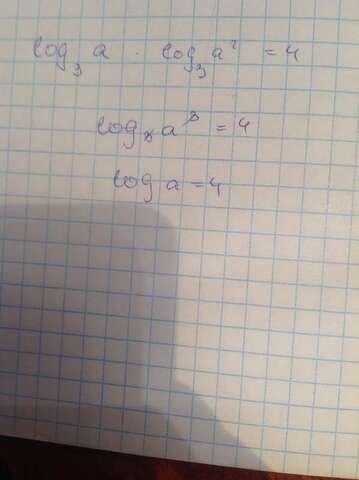 log₃ a · log₃ a² = 4
log₃ a³ = 4
log a = 4